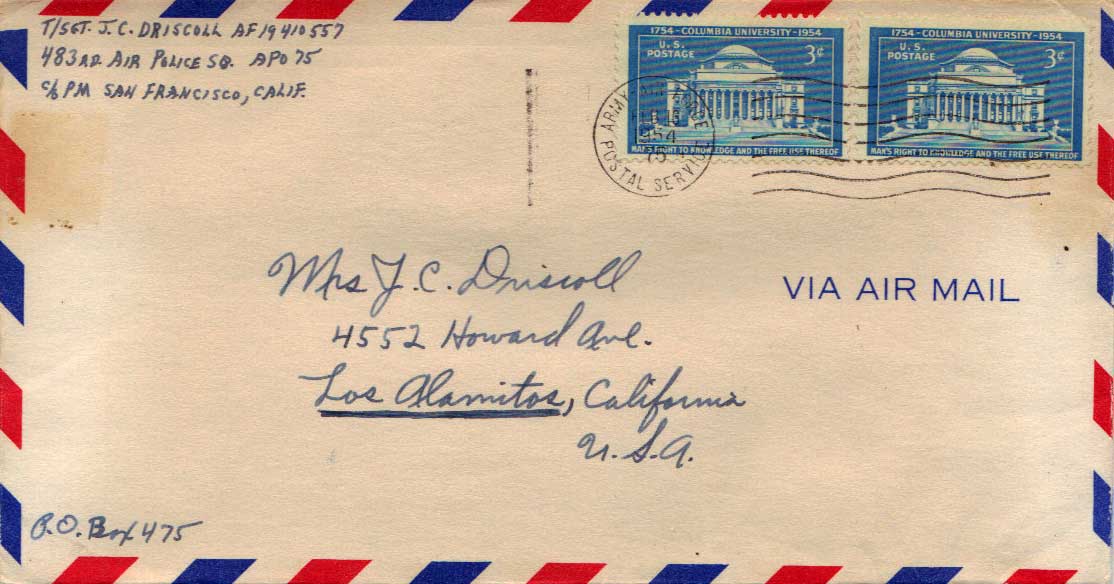 T/SGT. J. C. DRISCOLL AF 19 410 557
483RD. AIR POLICE SQ. APO 75
c/o PM SAN FRANCISCO, CALIF.
1754 - COLUMBIA UNIVERSITY - 1954
U. S. POSTAGE
3¢
MAN'S RIGHT TO KNOWLEDGE AND THE FREE USE THEREOF
1754 - COLUMBIA UNIVERSITY - 1954
U. S. POSTAGE
3¢
MAN'S RIGHT TO KNOWLEDGE AND THE FREE USE THEREOF
ARMY-AIR FORCE
FEB
1954
75
POSTAL SERVICE
Mrs J. C. Driscoll
VIA AIR MAIL
4552 Howard Ave.
Los Alamitos, California
U.S.A.
P.O. Box 475